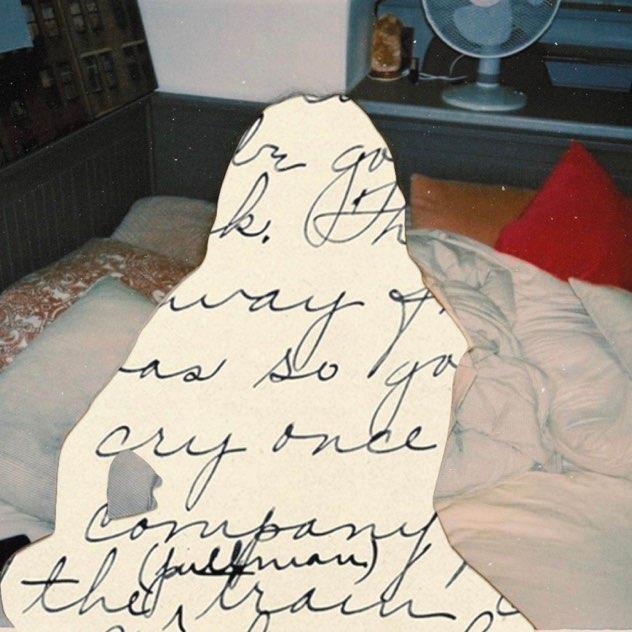 go
k. Th
way
as so go
cry once
company,
(pullman)
the train